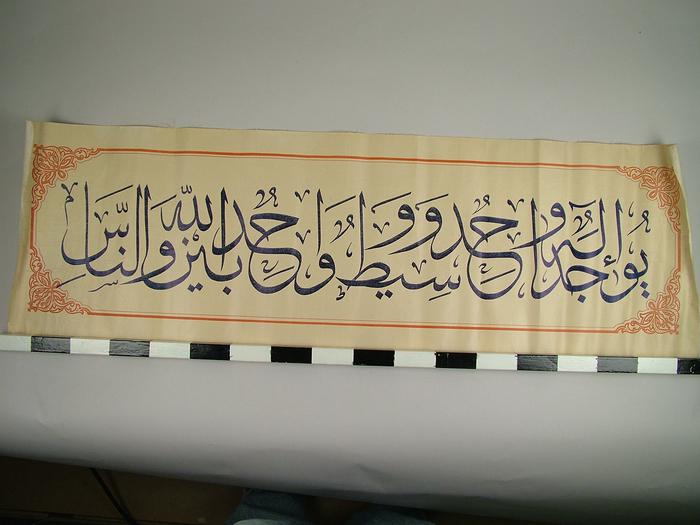 يوجد إله واحد ووسيط واحد بين الله والناس